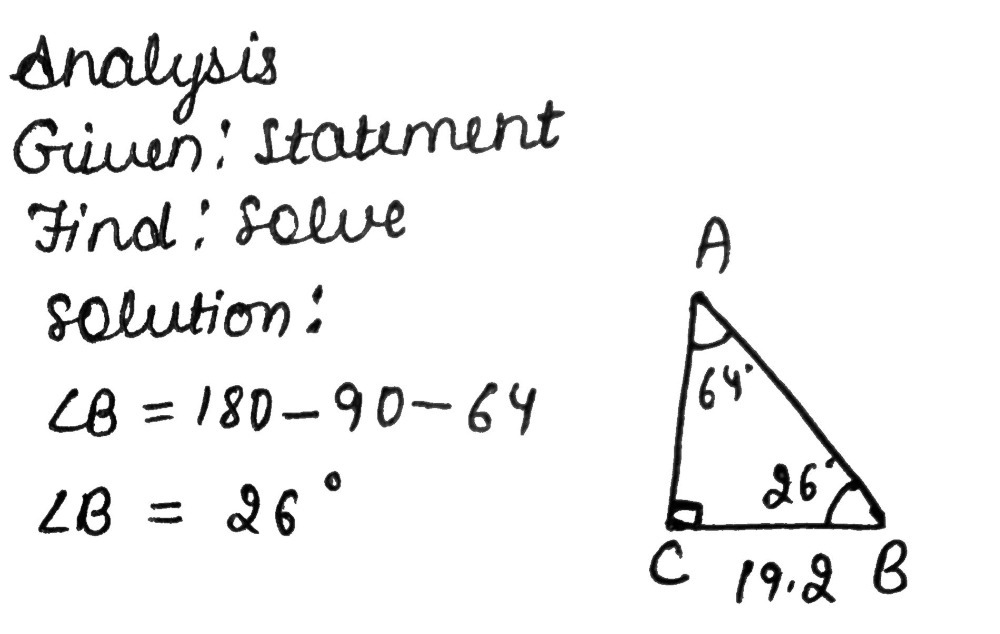 Analysis
Given: Statement
Find: Solve
Solution:
∠B = 180 - 90 - 64
∠B = 26°
A
64°
26°
C 19.2 B